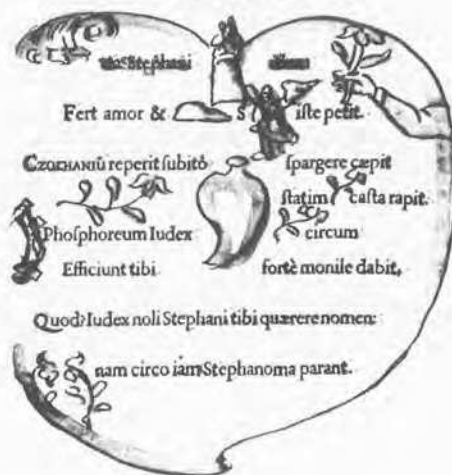 Stephani
Fert amor & s iste petit.
CZOCHANIŨ reperit subitò spargere cæpit
statim casta rapit.
Phosphoreum Iudex circum
Efficiunt tibi fortè monile dabit,
Quod? Iudex noli Stephani tibi quærere nomen:
nam circo iàm Stephanoma parant.